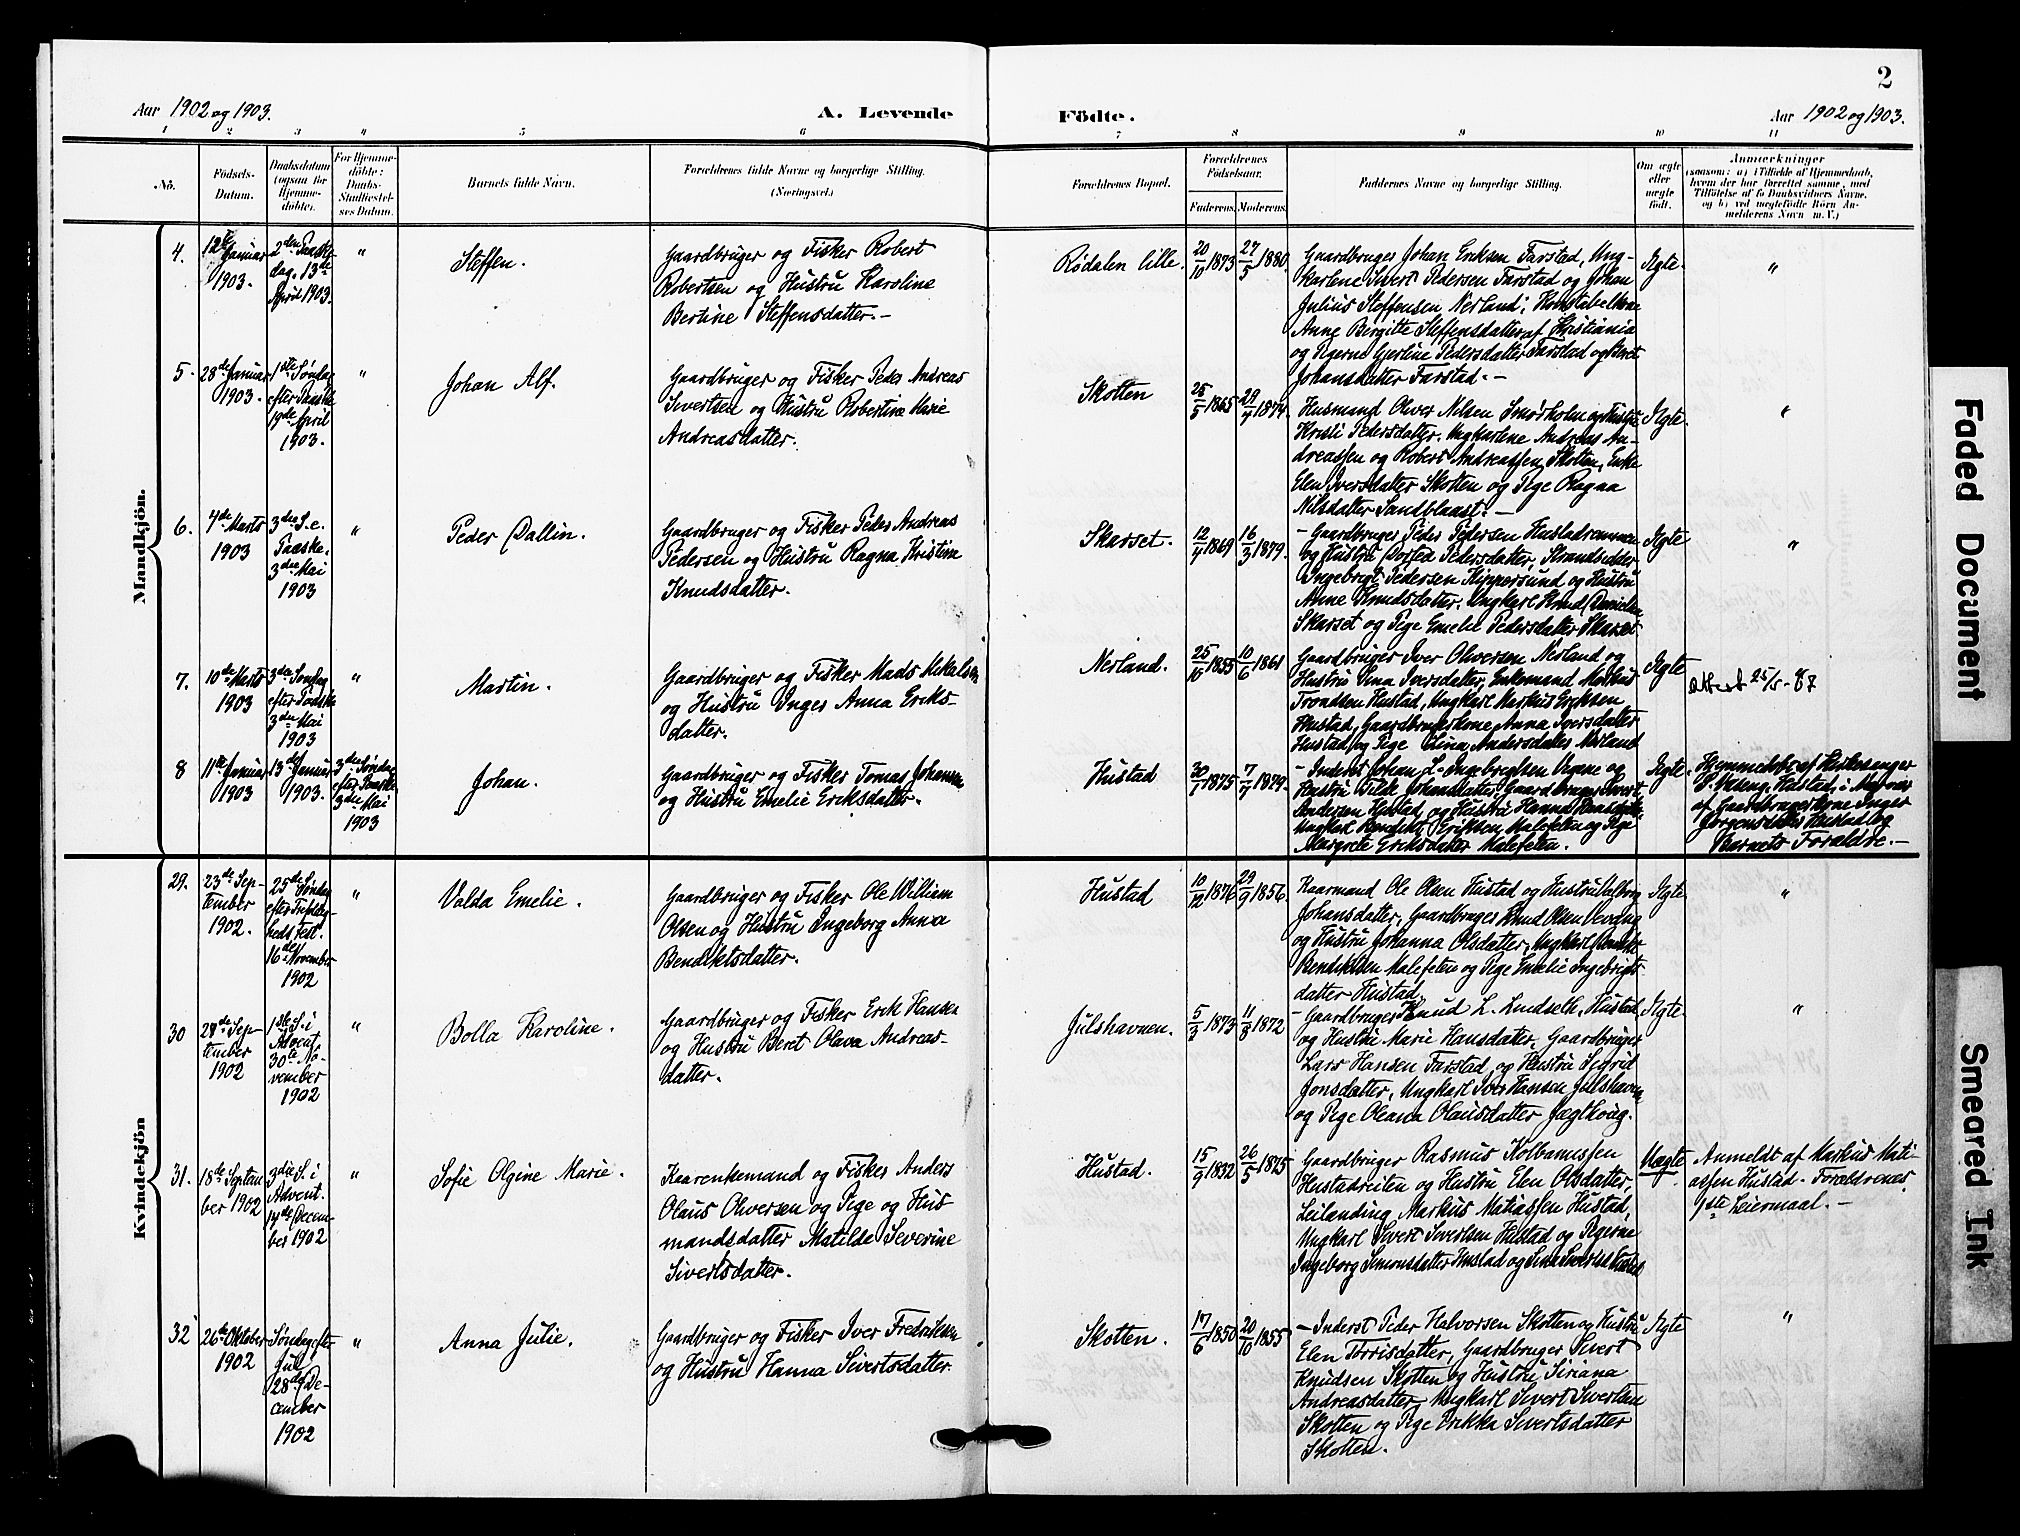 2
Aar 1902 og 1903.
A. Levende Födte.
Aar 1902 og 1903.
1 2 3 4 5 6 7 8 9 10 11
Nô.
Födsels-Datum.
Daabsdatum (ogsaa for Hjemmedöbte).
For Hjemmedöbte: Daabs-Stadfæstelses Datum.
Barnets fulde Navn.
Forældrenes fulde Navne og borgerlige Stilling.
(Næringsvei.)
Forældrenes Bopæl.
Forældrenes Födselsaar.
Faderens. Moderens.
Faddernes Navne og borgerlige Stilling.
Om ægte eller uægte födt.
Anmærkninger
(saasom: a) i Tilfælde af Hjemmedaab, hvem der har forrettet samme, med Tilföielse af to Daabsvidners Navne, og b) ved uægtefödte Börn Anmelderens Navn m. V.)
Mandkjön.
4.
12te Januar
1903.
2den Paaske-
dag, 13de
April 1903.
"
Steffen.
Gaardbruger og Fisker Robert
Robertsen og Hustru Karoline
Bertine Steffensdatter.-
Rødalen lille.
20/10 1873
27/5 1880.
Gaardbruger Johan Eriksen Farstad, Ung-
karlene Sivert Pedersen Farstad og Johan
Julius Steffensen Nerland; Konstabelkone
Anne Bergitte Steffensdatter af Kristiania
og Pigerne Gjertine Pedersdatter Farstad og Beret
Johansdatter Farstad.-
Ægte.
"
5.
28de Januar
1903.
1ste Søndag
efter Paaske
19de April
1903.
"
Johan Alf.
Gaardbruger og Fisker Peder Andreas
Sivertsen og Hustru Robertine Marie
Andreasdatter.
Skotten
25/5 1865
29/7 1874.
Husmand Oliver Nilsen Snørholm og Hustru
Kristi Pedersdatter. Ungkarlene Andreas An-
dreassen og Robert Andreassen Skotten, Enke
Elen Iversdatter Skotten og Pige Ragna
Nilsdatter Sandblaast.-
Ægte.
"
6.
4de Marts
1903
3die S. e.
Paaske.
3die Mai
1903
"
Peder Dallin.
Gaardbruger og Fisker Peder Andreas
Pedersen og Hustru Ragna Kristine
Knudsdatter.
Skarset.
12/4 1869
16/3 1879.
- Gaardbruger Peder Pedersen Hustad
og Hustru Dortea Pedersdatter, Strandsidder
Ingebrigt Pedersen Skippersund og Hustru
Anne Knudsdatter. Ungkarl Knud Danielsen
Skarset og Pige Emelie Pedersdatter Skarset
Ægte
"
7.
10de Marts
1903
3die Søndag
efter Paaske
3die Mai
1903
"
Martin.
Gaardbruger og Fisker Mads Mikalsen
og Hustru Inger Anna Eriks-
datter.
Nerland.
25/10 1855
10/6 1861
Gaardbruger Iver Oliversen Nerland og
Hustru Sina Iversdatter, Enkemand
Trondsen Hustad, Ungkarl Markus Eriksen
Hustad, Gaardbrugerkone Anna Iversdatter
Hustad og Pige Elina Andersdatter Nerland
Ægte
Attest 25/5-87
8
11te Januar
1903
13de Januar
1903.
3die Søndag
efter Paaske
3die Mai
1903
Johan.
Gaardbruger og Fisker Tomas Johansen
og Hustru Emelie Eriksdatter.
Hustad
30/1 1875
7/7 1879.
- Inderst Johan L. Ingebrigtsen Vegene og
Hustru Gaardbruger Sivert
Andersen Hustad og Hustru Hanna
Ungkarl Bendikt Eriksen Malefeten og Pige
Margrete Eriksdatter Malefeten.
Ægte.
Hjemmedøbt af Kirkesanger
S. Hustad, i Nærvær
af Gaardbrugerkone Inger
Jørgensdatter Hustad og
Barnets Forældre.-
Kvindekjön
29.
23de Sep-
tember
1902.
25de Søndag
efter Trefoldig-
heds Fest.
16de November
1902
"
Valda Emelie.
Gaardbruger og Fisker Ole Williem
Olsen og Hustru Ingeborg Anna
Bendiktsdatter.
Hustad
10/12 1876
29/9 1856.
Kaarmand Ole Olsen Hustad og Hustru Valborg
Johansdatter, Gaardbruger Knud Olsen
og Hustru Johanna Olsdatter, Ungkarl Bendikt
Bendiktsen Malefeten og Pige Emelie Ingebrigts-
datter Hustad.
Ægte.
"
30
28de Sep-
tember
1902
1ste S. i
Advent.
30te No-
vember
1902
"
Bolla Karoline.
Gaardbruger og Fisker Erik Hansen
og Hustru Beret Olava Andreas-
datter.
Julshavnen.
5/3 1873
11/8 1872
- Gaardbruger Knud L. Lindseth, Hustad
og Hustru Marie Hansdatter, Gaardbruger
Lars Hansen Farstad, og Hustru Sigrid
Jonsdatter, Ungkarl Iver Hansen Julshavnen
og Pige Oleana Olausdatter Jægthoug.
Ægte.
"
31.
18de Septem-
ber 1902
3die S. i
Advent.
14de Decem-
ber 1902
"
Sofie Olgine Marie.
Kaarenkemand og Fisker Anders
Olaus Oliversen og Pige og Hus-
mandsdatter Matilde Severine
Sivertsdatter.
Hustad.
15/9 1832
26/5 1875
Gaardbruger Rasmus Kolbanussen
Hustadreiten og Hustru Elen Olsdatter,
Leilænding Markus Matiassen Hustad,
Ungkarl Sivert Sivertsen Hustad og Pigerne
Ingeborg Simonsdatter Hustad og Sina Hustad
Uægte
Anmeldt af Markus Mati-
assen Hustad. Forældrenes
1ste Leiermaal.-
32
26te Oktober
1902
Søndag efter
Jul
28de De-
cember
1902
"
Anna Julie.
Gaardbruger og Fisker Iver Fredriksen
og Hustru Hanna Sivertsdatter.
Skotten.
17/6 1850
20/10 1855
- Inderst Peder Halvorsen Skotten og Hustru
Elen Torrisdatter, Gaardbruger Sivert
Knudsen Skotten og Hustru Siriana
Andreasdatter, Ungkarl Sivert Sivertsen
Skotten og Pige Erikka Sivertsdatter
Skotten.
Ægte
"
Faded Document
Smeared Ink